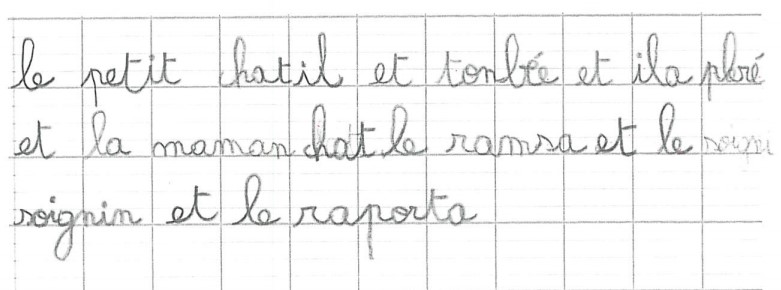 le petit chatil et tonbée et ila pleré
et la maman chat le ramsa et le soigni
soignin et le raporta